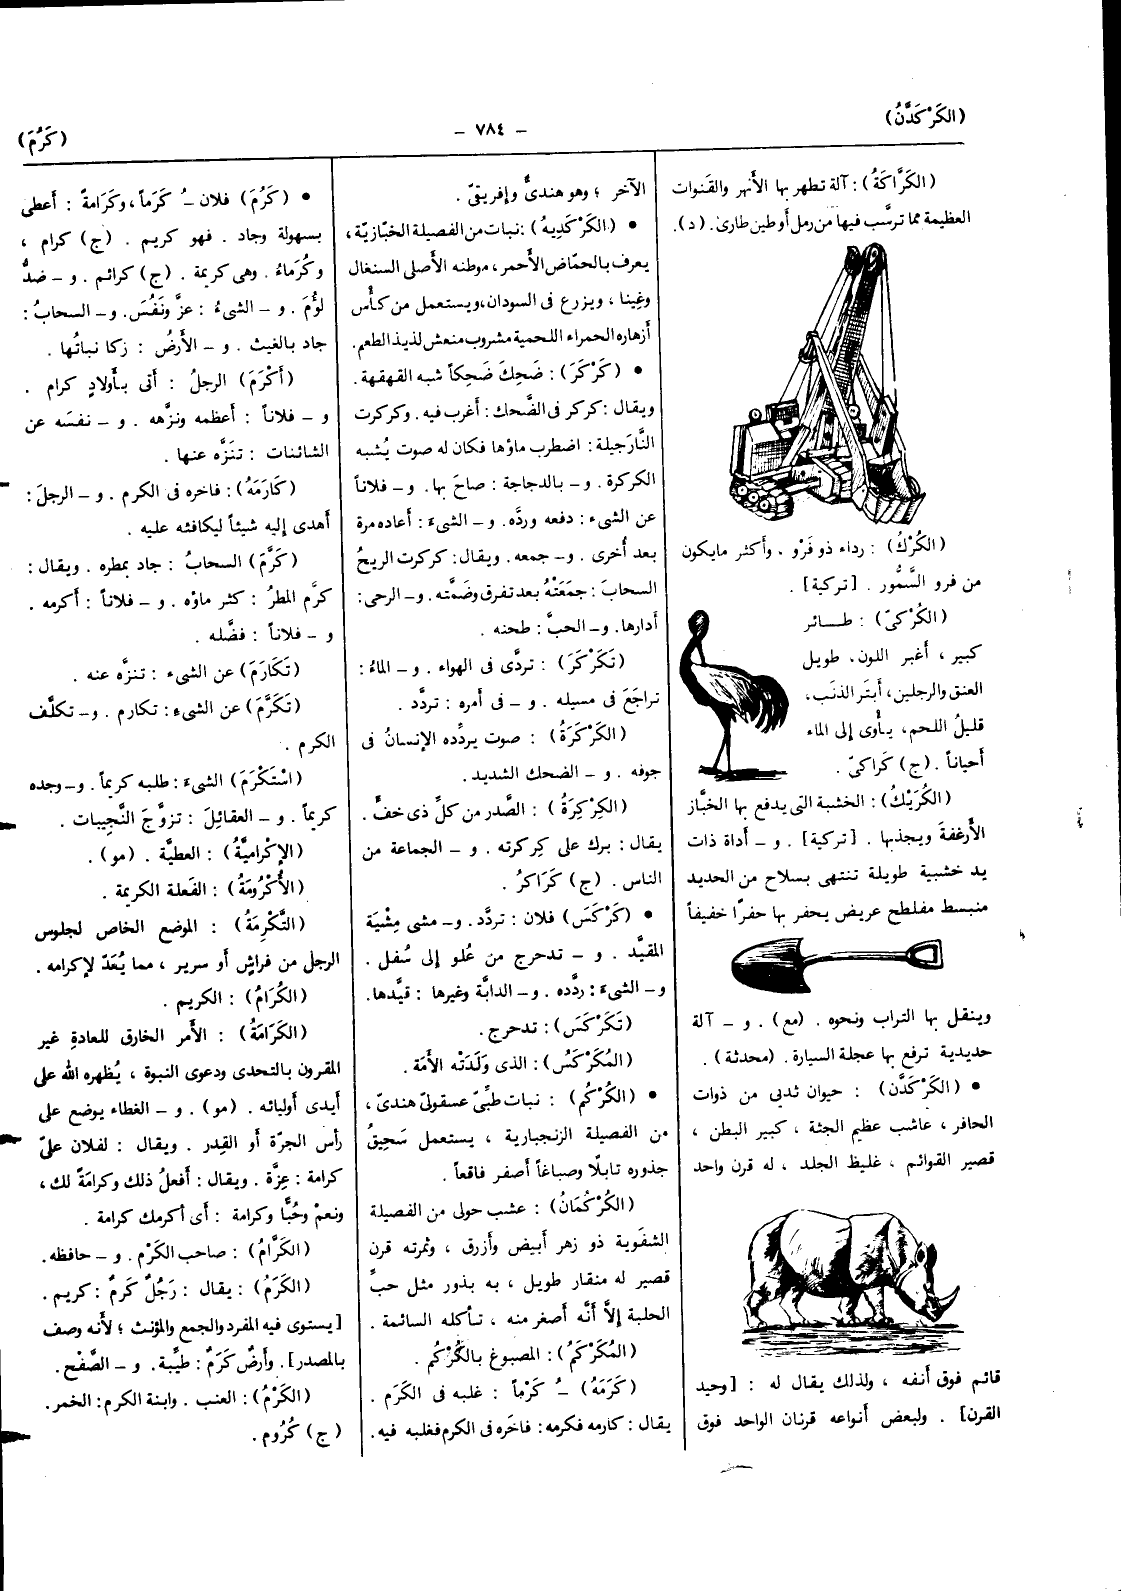 (الكَرْكَدَّنُ)
- ٧٨٤ -
(كَرُمَ)
(الكَرَّاكَةُ): آلة تطهر بها الأنهر والقَنوات
العظيمة مما ترسَّب فيها من رمل أو طين طارئ. (د).
(الكُرْكُ) : رداء ذو فَرْو ، وأكثر مايكون
من فرو السَّمُّور . [تركية] .
(الكُرْكىّ) : طــائر
كبير ، أغبر اللون، طويل
العنق والرجلين، أبتَر الذنَب،
قليلُ اللحم، يـأْوى إلى الماء
أحياناً . (ج) كَراكىّ .
(الكُرَيْكُ): الخشبة التى يدفع بها الخبَّاز
الأرغفةَ ويجذبها . [تركية] . و – أداة ذات
يد خشبية طويلة تنتهى بسلاح من الحديد
منبسط مفلطح عريض يحفر بها حفرًا خفيفاً
وينقل بها التراب ونحوه . (مع) . و – آلة
حديدية ترفع بها عجلة السيارة. (محدثة) .
• (الكَرْكَدَّن) : حيوان ثديى من ذوات
الحافر ، عاشب عظيم الجثة ، كبير البطن ،
قصير القوائم ، غليظ الجلد ، له قرن واحد
قائم فوق أنفه ، ولذلك يقال له : [وحيد
القرن] . ولبعض أنواعه قرنان الواحد فوق
الآخر ؛ وهو هندىٌّ وإفريقىّ .
• (الكَرْكَدِيهُ): نبات من الفصيلة الخبّازيّة،
يعرف بالحمّاض الأحمر، موطنه الأصلى السنغال
وغينا ، ويزرع فى السودان، ويستعمل من كـأْس
أزهاره الحمراء اللحمية مشروب منعش لذيذ الطعم.
• (كَرْكَرَ) : ضَحِكَ ضَحِكاً شبه القهقهة.
ويقال: كركر فى الضَّحك: أغرب فيه. وكركرت
النَّارَجيلة: اضطرب ماؤها فكان له صوت يُشبه
الكركرة. و– بالدجاجة: صاحَ بها. و– فلاناً
عن الشىء: دفعه وردَّه. و– الشىءَ: أعاده مرة
بعد أخرى. و– جمعه. ويقال: كركرت الريحُ
السحابَ: جمَعَتْهُ بعد تفرق وضَمَّته. و– الرحى:
أدارها. و– الحبَّ: طحنه .
(تَكَرْكَرَ) : تردَّى فى الهواء . و– الماءُ:
تراجَعَ فى مسيله . و– فى أمره : تردَّد .
(الكَرْكَرَةُ) : صوت يردِّده الإنسانُ فى
جوفه . و – الضحك الشديد.
(الكِرْكِرَةُ) : الصَّدر من كلِّ ذى خفٍّ .
يقال: برك على كِركرته . و – الجماعة من
الناس. (ج) كَرَاكرُ .
• (كَرْكَسَ) فلان : تردَّد. و– مشى مِشْيَة
المقيَّد . و – تدحرج من عُلو إلى سُفل .
و– الشىءَ: ردَّده . و– الدابَّة وغيرها : قيَّدها.
(تَكَرْكَسَ) : تدحرج.
(المُكَرْكَسُ): الذى وَلَدَتْه الأَمَة .
• (الكُرْكُم) : نبات طبِّىّ عسقولىّ هندىّ ،
من الفصيلة الزنجبارية ، يستعمل سَحيقُ
جذوره تابلًا وصباغاً أصفر فاقعاً .
(الكُرْكُمَانُ) : عشب حولى من الفصيلة
الشفَوية ذو زهر أبيض وأزرق ، وثمرته قرن
قصير له منقار طويل ، به بذور مثل حبِّ
الحلبة إلاَّ أنَّه أصغر منه ، تـأكله السائمة .
(المُكَرْكَمُ): المصبوغ بالكُرْكُم .
(كَرَمَهُ) –ُ كَرْماً : غلبه فى الكَرَم .
يقال: كارمه فكرمه: فاخَره فى الكرم فغلبه فيه.
• (كَرُمَ) فلان –ُ كَرَماً، وكَرَامةً : أعطى
بسهولة وجاد . فهو كريم . (ج) كرام ،
وكُرَماءُ. وهى كريمة . (ج) كرائم . و– ضدُّ
لؤُمَ. و– الشىءُ : عزَّ ونَفُسَ. و– السحابُ:
جاد بالغيث . و– الأَرضُ : زكا نباتُها.
(أَكْرَمَ) الرجلُ : أتى بـأولادٍ كرام .
و – فلاناً : أعظمه ونزَّهه . و– نفسَه عن
الشائنات : تنَزَّه عنها .
(كَارَمَهُ): فاخره فى الكرم . و– الرجلَ:
أهدى إليه شيئاً ليكافئه عليه .
(كَرَّمَ) السحابُ: جاد بمطره. ويقال:
كرَّم المطرُ: كثر ماؤه. و– فلاناً: أكرمه .
و– فلاناً : فضَّله .
(تَكَارَمَ) عن الشىء : تنزَّه عنه .
(تَكَرَّمَ) عن الشىء: تكارم . و– تكلَّف
الكرم .
(اسْتَكْرَمَ) الشىءَ: طلبه كريماً. و– وجده
كريماً . و– العقائلَ : تزوَّجَ النَّجِيبات .
(الإِكْرامِيَّةُ) : العطيَّة . (مو).
(الأُكْرُومَةُ) : الفَعلة الكريمة .
(التَّكْرِمَةُ) : الموضع الخاص لجلوس
الرجل من فراشٍ أو سرير ، مما يُعَدّ لإكرامه .
(الكُرَامُ) : الكريم .
(الكَرَامَةُ) : الأَمر الخارق للعادةِ غير
المقرون بالتحدى ودعوى النبوة ، يُظهره الله على
أيدى أوليائه . (مو) . و– الغطاء يوضع على
رأس الجرّة أو القِدر . ويقال : لفلان علىّ
كرامة : عِزَّة . ويقال : أفعلُ ذلك وكرامَةً لك،
ونعمْ وحُبًّا وكرامة : أى أكرمك كرامة .
(الكَرَّامُ) : صاحب الكَرْم . و– حافظه.
(الكَرَمُ) : يقال : رَجُلٌ كَرَمٌ : كريم .
[يستوى فيه المفرد والجمع والمؤنث ؛ لأنه وصف
بالمصدر]. وأَرضٌ كَرَمٌ : طيّبة. و– الصَّفْح.
(الكَرْمُ): العنب . وابنة الكرم: الخمر.
(ج) كُرُوم.